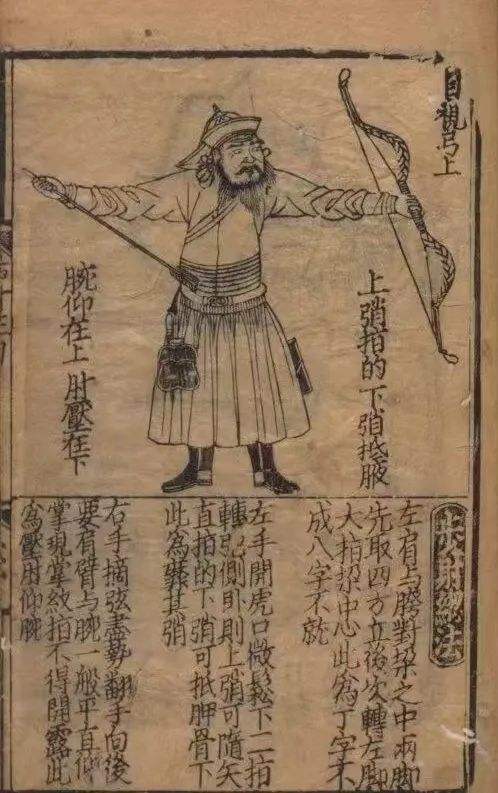 目視弓上
上弰拍的下弰抵
腕仰在上肘壓在下
步射總法
左肩与胯對垜之中兩脚
先取四方立後次轉左脚
大拍垜中心此為丁字不
成八字不就
左手開虎口微鬆下二指
轉弝側卧則上弰可隨矢
直拍的下弰可抵胛骨下
此為靡其弰
右手摘弦盡勢翻手向後
要肩臂与腕一般平直仰
掌現掌紋指不得開露此
為壓肘仰腕